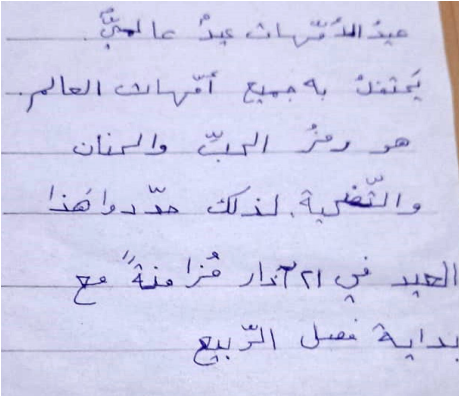 عيدُ الأمّهات عيدٌ عالميٌّ.
يَحتفلُ به جميع أمّهات العالم.
هو رمزُ الحبِّ والحنان
والتّضحية. لذلك حدّدوا هَذا
العيد في ٢١ آذار مُزامنةً مع
بداية فصل الرّبيع